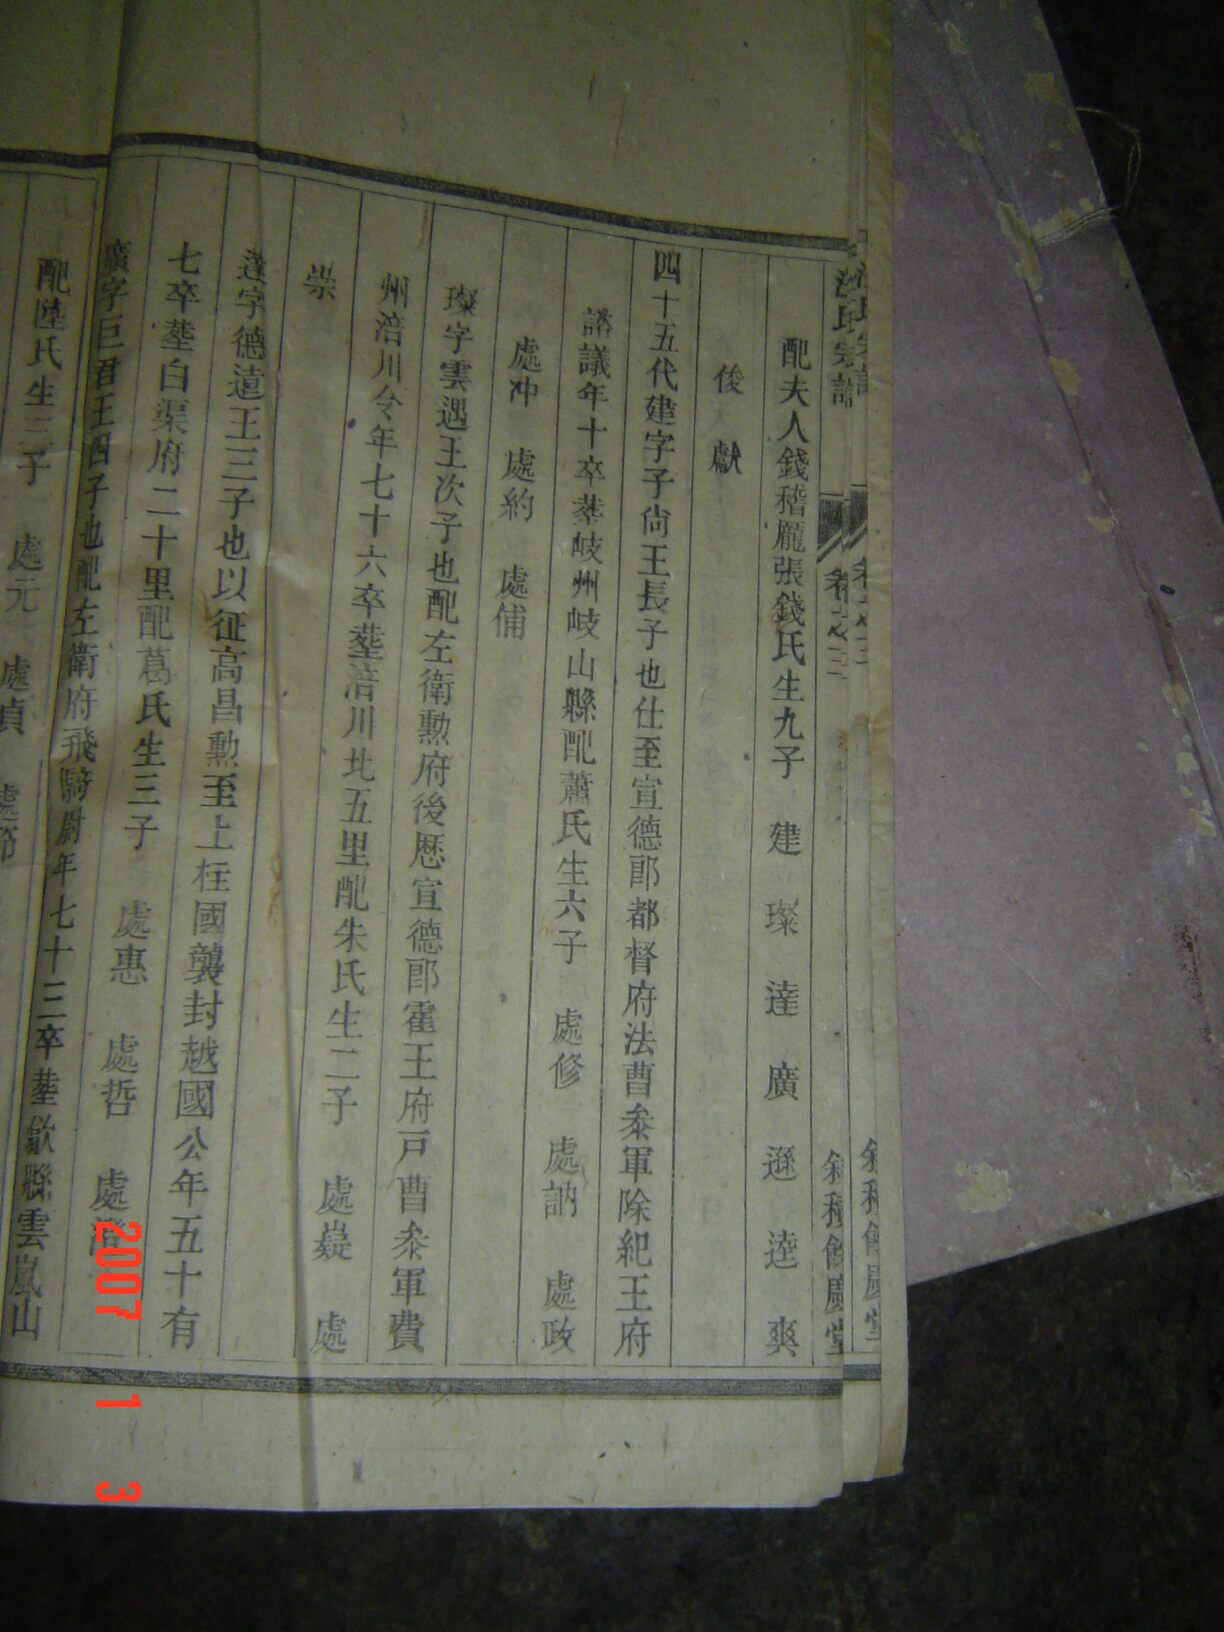 汪氏宗譜 卷之三 餘慶堂
配夫人錢稽龐張錢氏生九子 建 璨 達 廣 遜 逵 爽
俊 獻
四十五代建字子尙王長子也仕至宣德郎都督府法曹叅軍除紀王府
諮議年十卒塟岐州岐山縣配蕭氏生六子 處修 處訥 處政
處冲 處約 處俌
璨字雲遇王次子也配左衛勲府後歷宣德郎霍王府戸曹叅軍費
州涪川令年七十六卒塟涪川北五里配朱氏生二子 處嶷 處
崇
達字德遠王三子也以征高昌勲至上柱國襲封越國公年五十有
七卒塟白渠府二十里配葛氏生三子 處惠 處哲 處澄
廣字巨君王四子也配左衛府飛騎尉年七十三卒塟歙縣雲嵐山
配陸氏生三子 處元 處貞 處節
2007 1 3